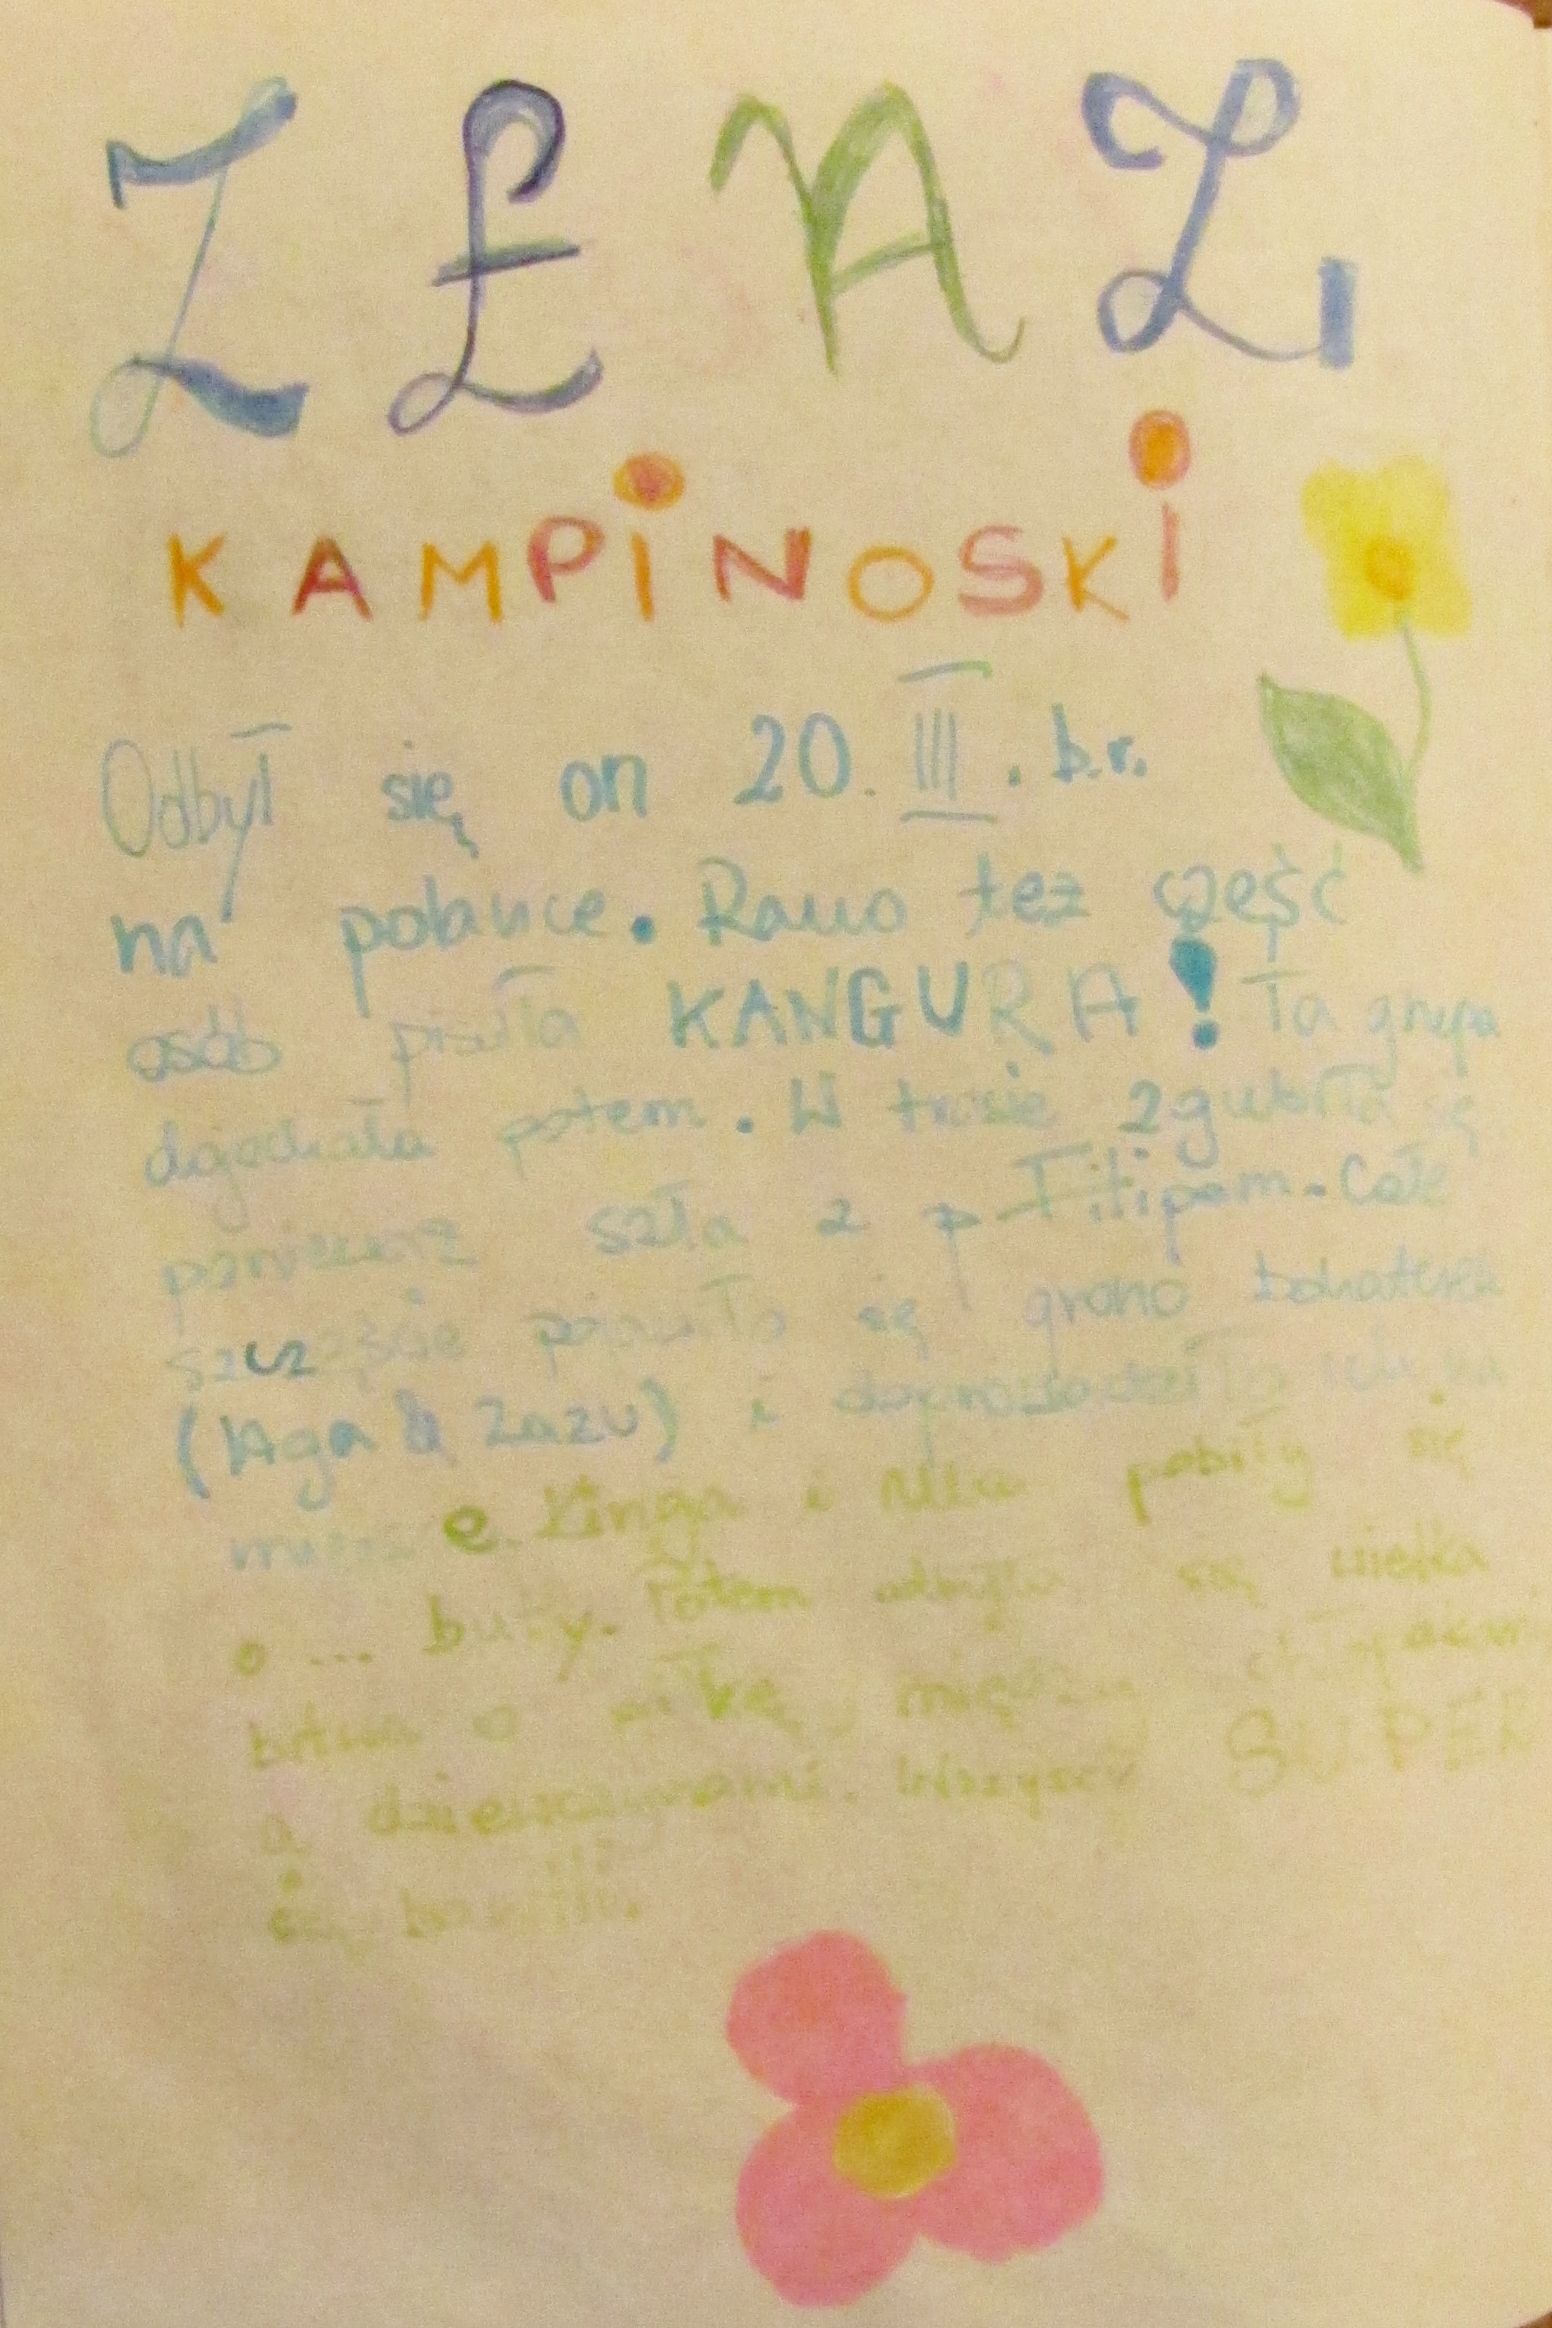 ZŁAZ
KAMPINOSKI
Odbył się on 20. III. b.r.
na polance. Rano też część
osób pisała KANGURA! Ta grupa
dojechała potem. W lesie zgubiła się
ponieważ szła z p Filipem. Całe
szczęście pojawiło się grono bohaterek
(Aga & Zazu) i doprowadziło ich na
miejsce. Kinga i Ala pobiły się
o ... buty. Potem odbyła się wielka
bitwa o piłkę, między chłopakami
a dziewczynami. Wszyscy SUPER
się bawili.